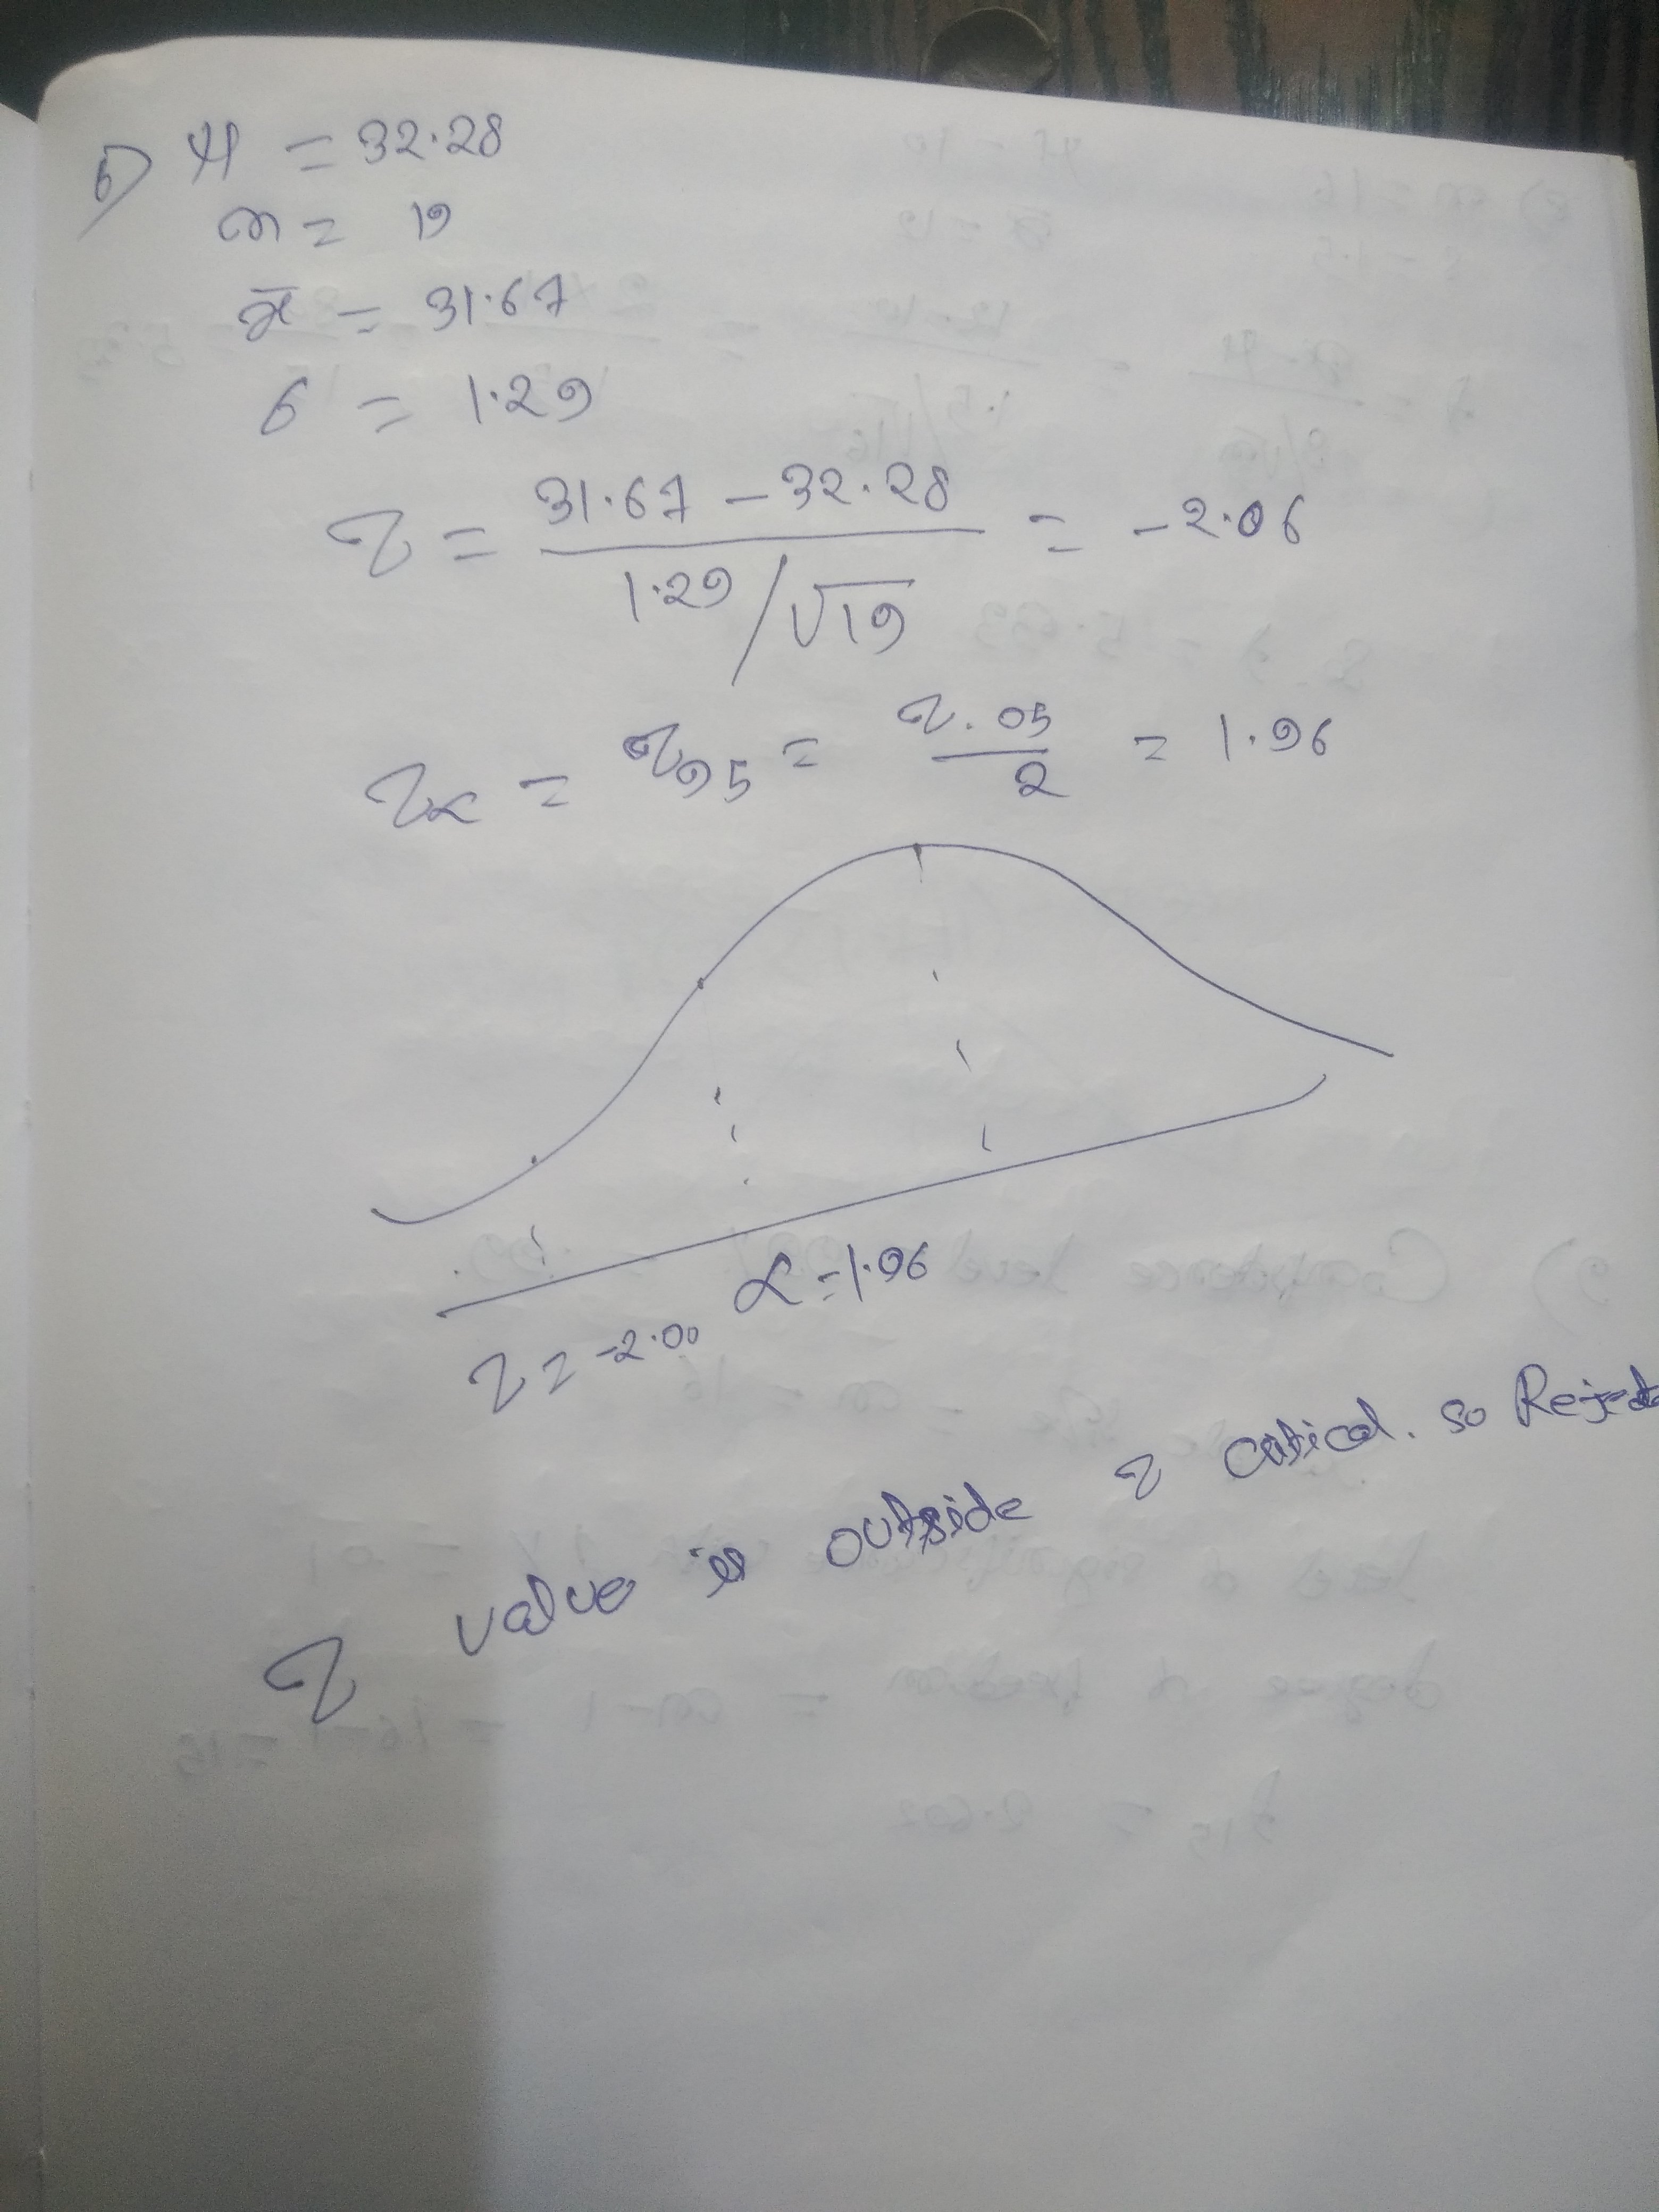 6) μ = 32.28
n = 19
x̄ = 31.67
σ = 1.29
z = (31.67 - 32.28) / (1.29/√19) = -2.06
zα = z95 = z.05/2 = 1.96
α = 1.96
z = -2.00
z value is outside z critical. so Reject